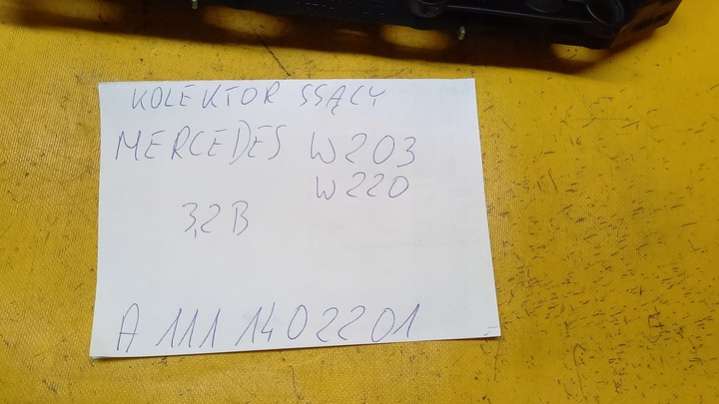 KOLEKTOR SSĄCY
MERCEDES W203
W220
3,2 B
A 111 140 2201